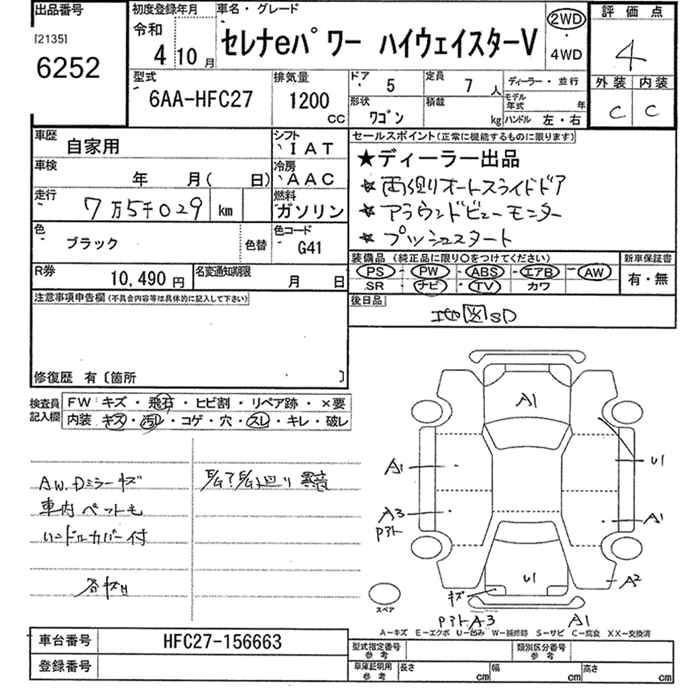 出品番号
[2135]
6252
初度登録年月
令和
4年 10月
車名・グレード
セレナeパワー ハイウェイスターV
2WD
・
4WD
評価点
4
外装 内装
C C
型式
6AA-HFC27
排気量
1200
CC
ドア 5
定員 7人
ディーラー・並行
形状
ワゴン
積載
kg
モデル年式 年
ハンドル 左・右
車歴
自家用
シフト
IAT
車検
年 月( 日)
冷房
AAC
走行
7万5千029 km
燃料
ガソリン
色
ブラック
色替
色コード
G41
R券
10,490 円
名変通知期限
月 日
セールスポイント(正常に機能するものに限ります)
★ディーラー出品
★両側オートスライドドア
★アラウンドビューモニター
★プッシュスタート
装備品 (純正品に限り○をつけてください)
PS PW ABS エアB AW
SR ナビ TV カワ
新車保証書
有・無
後日品
SD
注意事項申告欄(不具合内容等は具体的に記入して下さい)
修復歴 有〔箇所 〕
検査員記入欄
FW キズ・飛石・ヒビ割・リペア跡・×要
内装 キズ・汚レ・コゲ・穴・スレ・キレ・破レ
AW.Dミラーキズ
車内ペット毛
ハンドルカバー付
各キズH
A1
A1
U1
A3
Pアト
A1
A2
U1
キズ
PアトA3
A1
スペア
A-キズ E-エクボ U-凹み W-補修跡 S-サビ C-腐食 XX-交換済
車台番号
HFC27-156663
登録番号
型式指定番号
参考
類別区分番号
参考
車庫証明用
参考
長さ cm
幅 cm
高さ cm